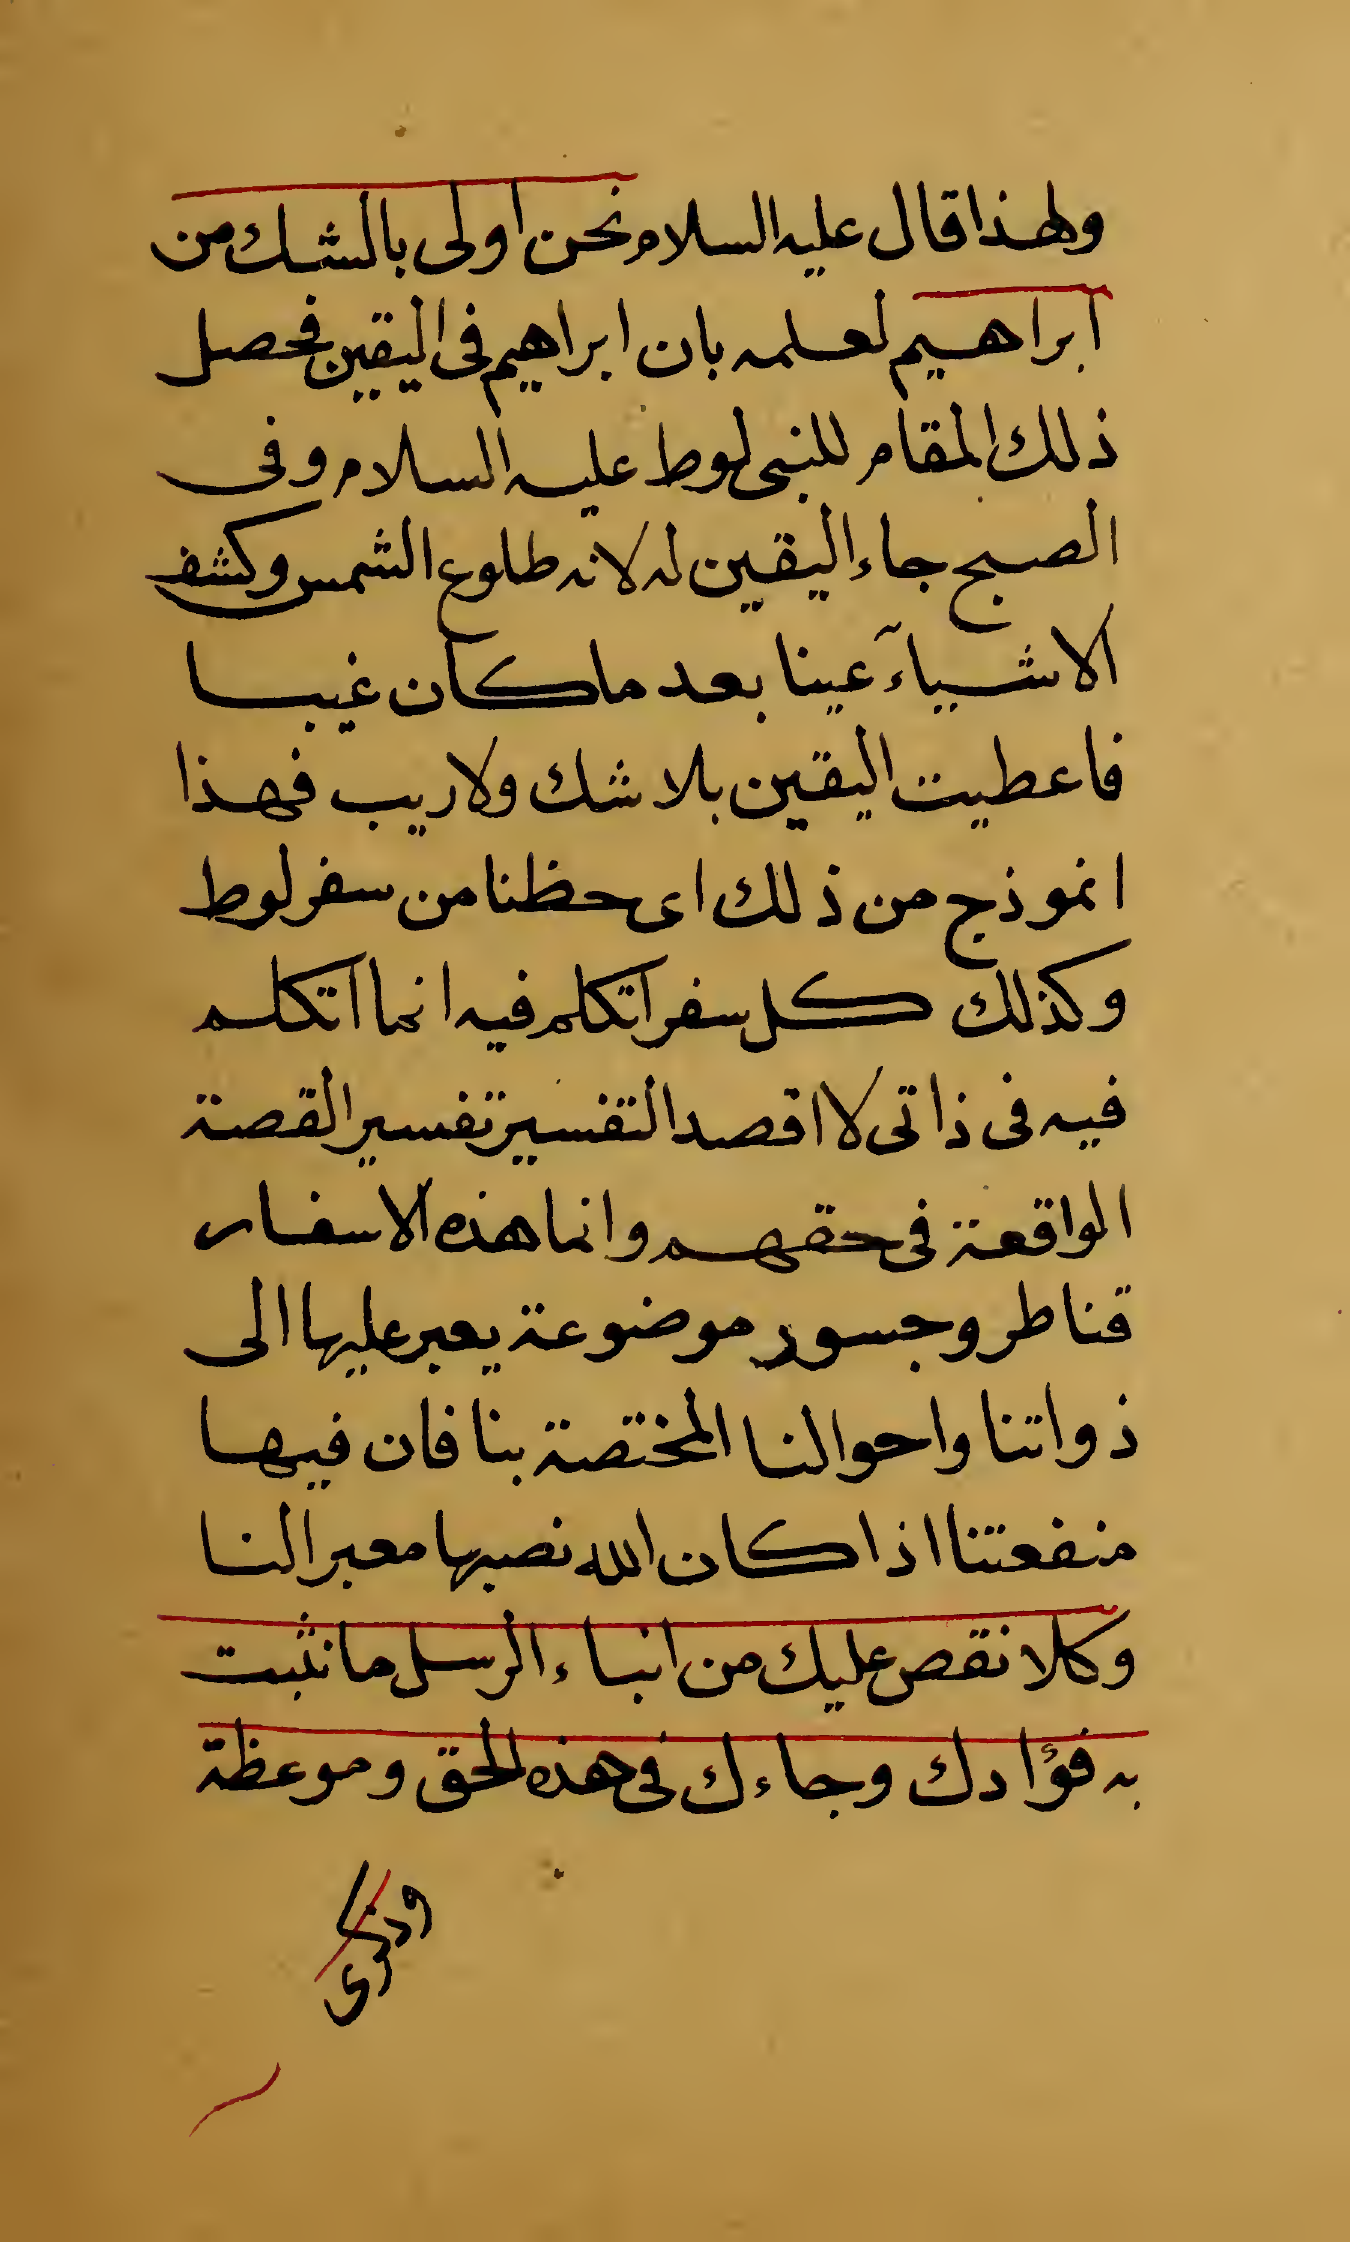 ولهذا قال عليه السلام نحن اولى بالشك من
ابراهيم لعلمه بان ابراهيم فى اليقين فحصل
ذلك المقام للنبى لوط عليه السلام وفى
الصبح جاء اليقين له لانه طلوع الشمس وكشف
الاشياء عينا بعد ما كان غيبا
فاعطيت اليقين بلا شك ولا ريب فهذا
انموذج من ذلك اى حظنا من سفر لوط
وكذلك كل سفر اتكلم فيه انما اتكلم
فيه فى ذاتى لا اقصد التفسير تفسير القصة
الواقعة فى حقهم وانما هذه الاسفار
قناطر وجسور موضوعة يعبر عليها الى
ذواتنا واحوالنا المختصة بنا فان فيها
منفعتنا اذا كان الله نصبها معبر النا
وكلا نقص عليك من انباء الرسل ما نثبت
به فؤادك وجاءك فى هذه الحق وموعظة
وذكرى